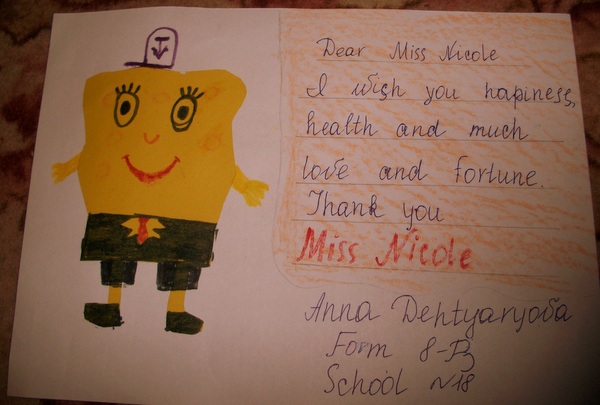 Dear Miss Nicole
I wish you hapiness,
health and much
love and fortune.
Thank you
Miss Nicole
Anna Dehtyaryova
Form 8-B
School №18